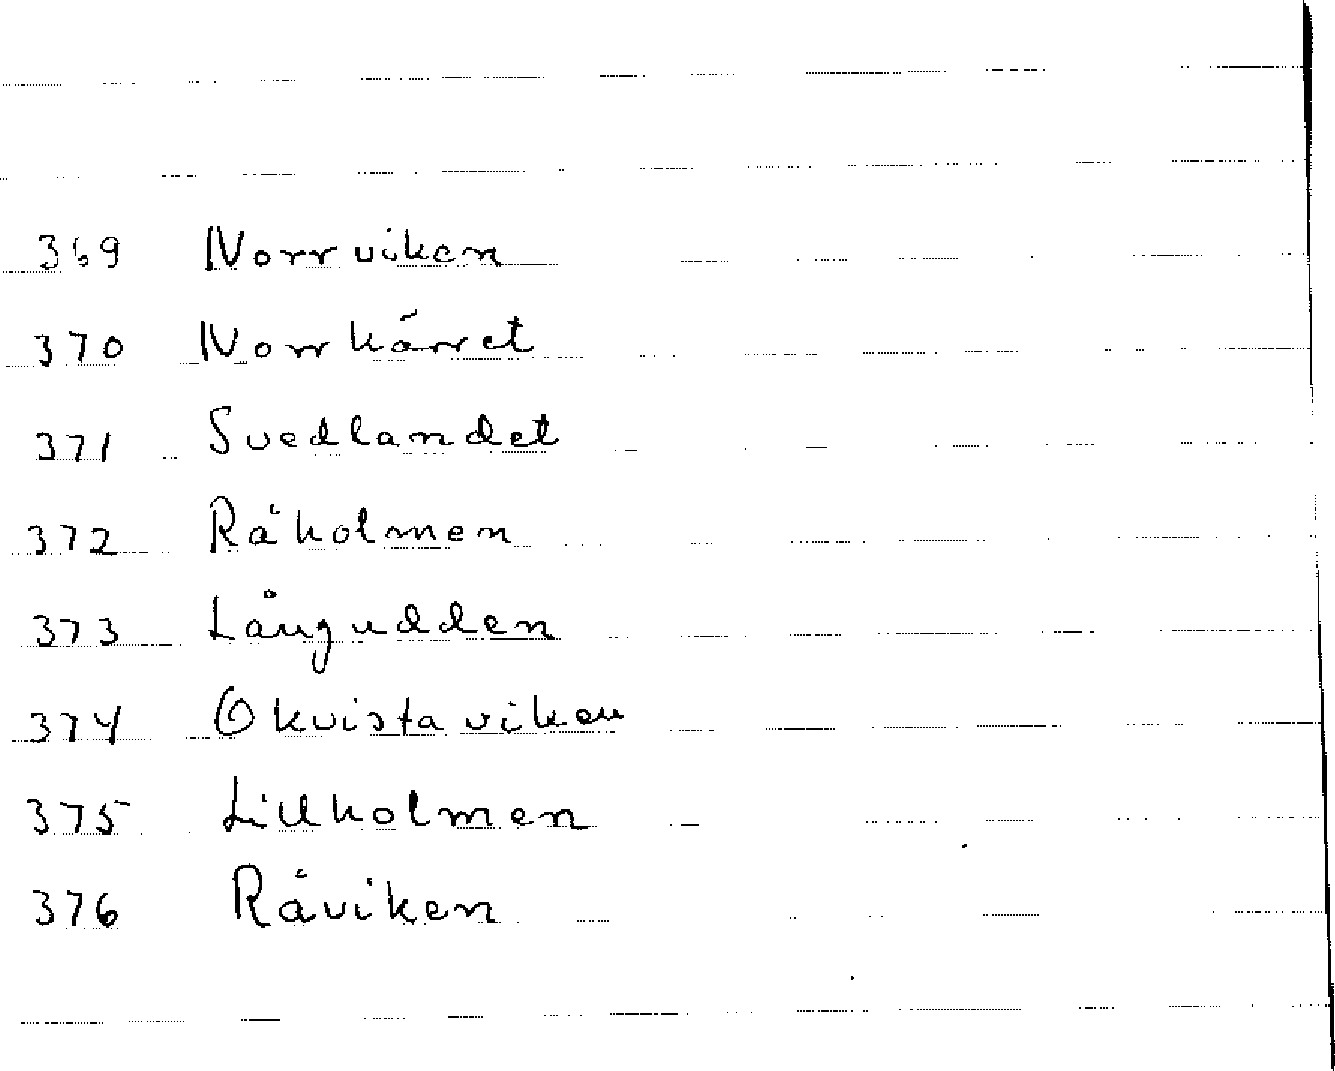 369 Norrviken
370 Norrkärret
371 Svedlandet
372 Råholmen
373 Långudden
374 Okvistaviken
375 Lillholmen
376 Råviken